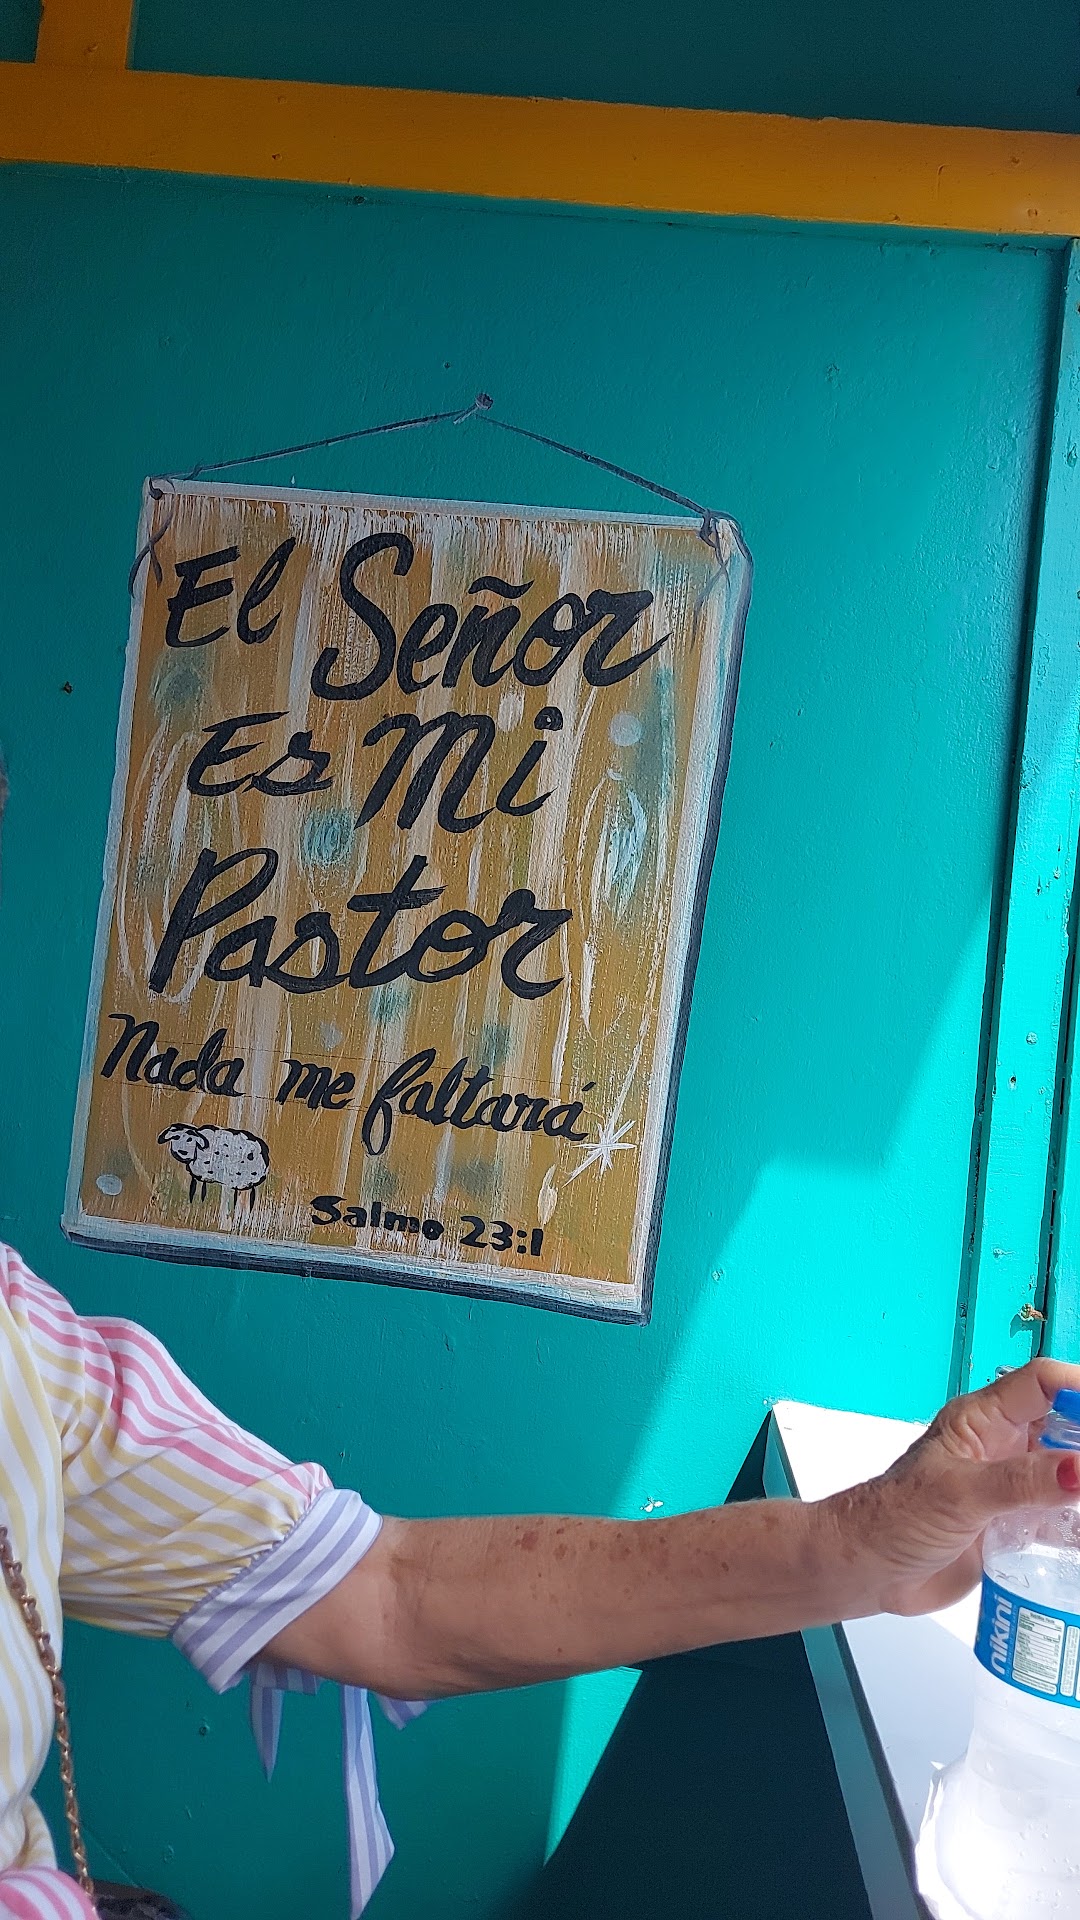 El Señor
Es Mi
Pastor
Nada me faltará
Salmo 23:1
nikini